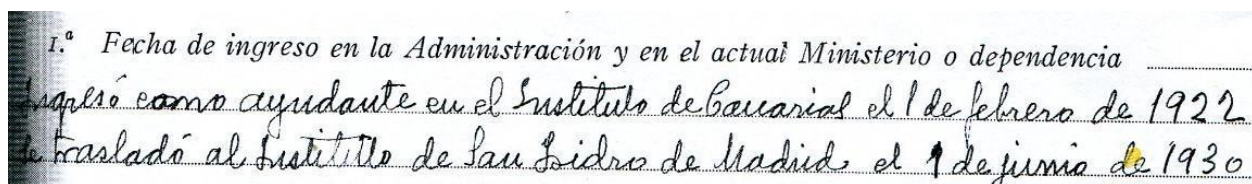 1.ª Fecha de ingreso en la Administración y en el actual Ministerio o dependencia
Ingresó como ayudante en el Instituto de Canarias el 1 de febrero de 1922
Se trasladó al Instituto de San Isidro de Madrid el 1 de junio de 1930